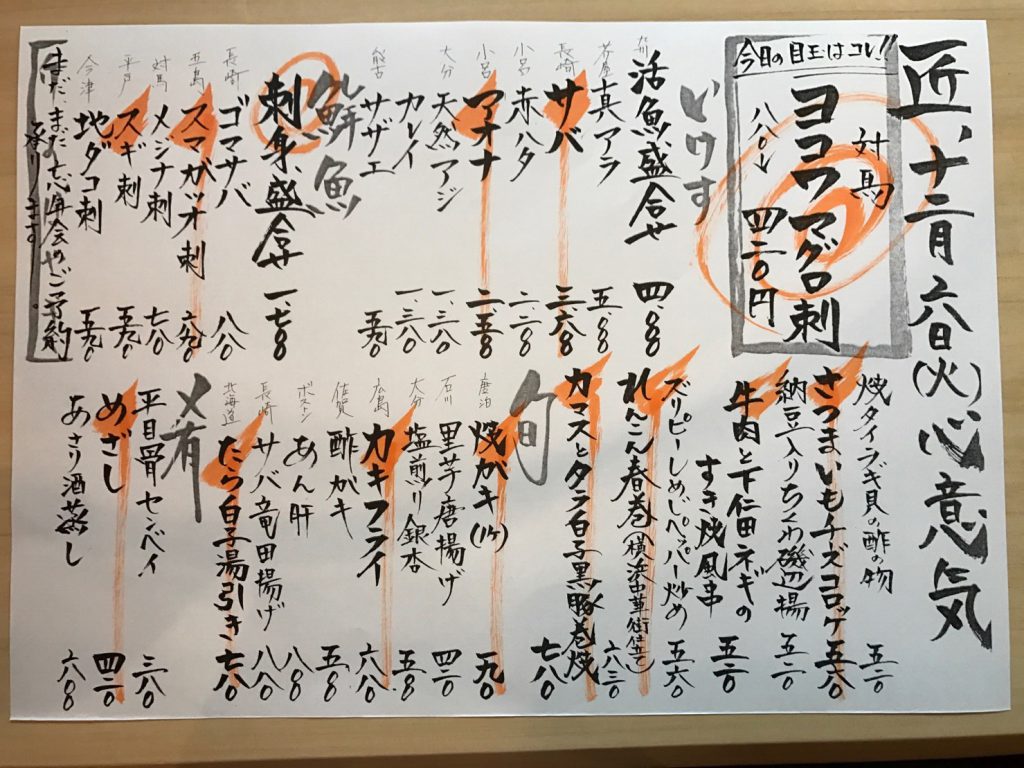 近、十二月六日(火)心意気
今日の目玉はコレ!!
対馬
ヨコワマグロ刺
八八〇↓四二〇円
いけす
活魚盛合せ 四、八〇
芦屋 真アラ 五、八〇
長崎 サバ 三、六八〇
小呂 赤ハタ 二、二八〇
小呂 アナナ 二、五八〇
大分 天然アジ 一、三二〇
カレイ 一、三八〇
能古 サザエ 五八〇
鮮魚
刺身盛合せ 一、七八〇
長崎 ゴマサバ 八八〇
五島 スマガツオ刺 六八〇
対馬 メジナ刺 七八〇
平戸 スギ刺 五八〇
今津 地ダコ刺 五八〇
まだ、まだの忘年会やご予約
承ります。
焼タイラギ貝の酢の物 五二〇
さつまいもチーズコロッケ 五八〇
納豆入りちくわ磯辺揚 五二〇
牛肉と下仁田ネギの
すき焼風串 五二〇
ズリピーしめじペッパー炒め 五六〇
れんこん春巻(横浜中華街仕立て) 六八〇
カマスとタラ白子黒豚巻焼 七八〇
旬
唐泊 焼ガキ(1ケ) 一九〇
石川 里芋唐揚げ 四二〇
大分 塩煎り銀杏 五八〇
広島 カキフライ 六八〇
佐賀 酢ガキ 五八〇
ボストン あん肝 八八〇
長崎 サバ竜田揚げ 八八〇
北海道 たら白子湯引き 七八〇
〆肴
平目骨センベイ 三八〇
めざし 四二〇
あさり酒蒸し 六八〇